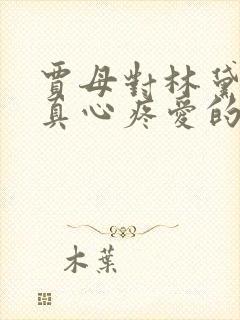 賈母對林黛
真心疼愛的
木葉